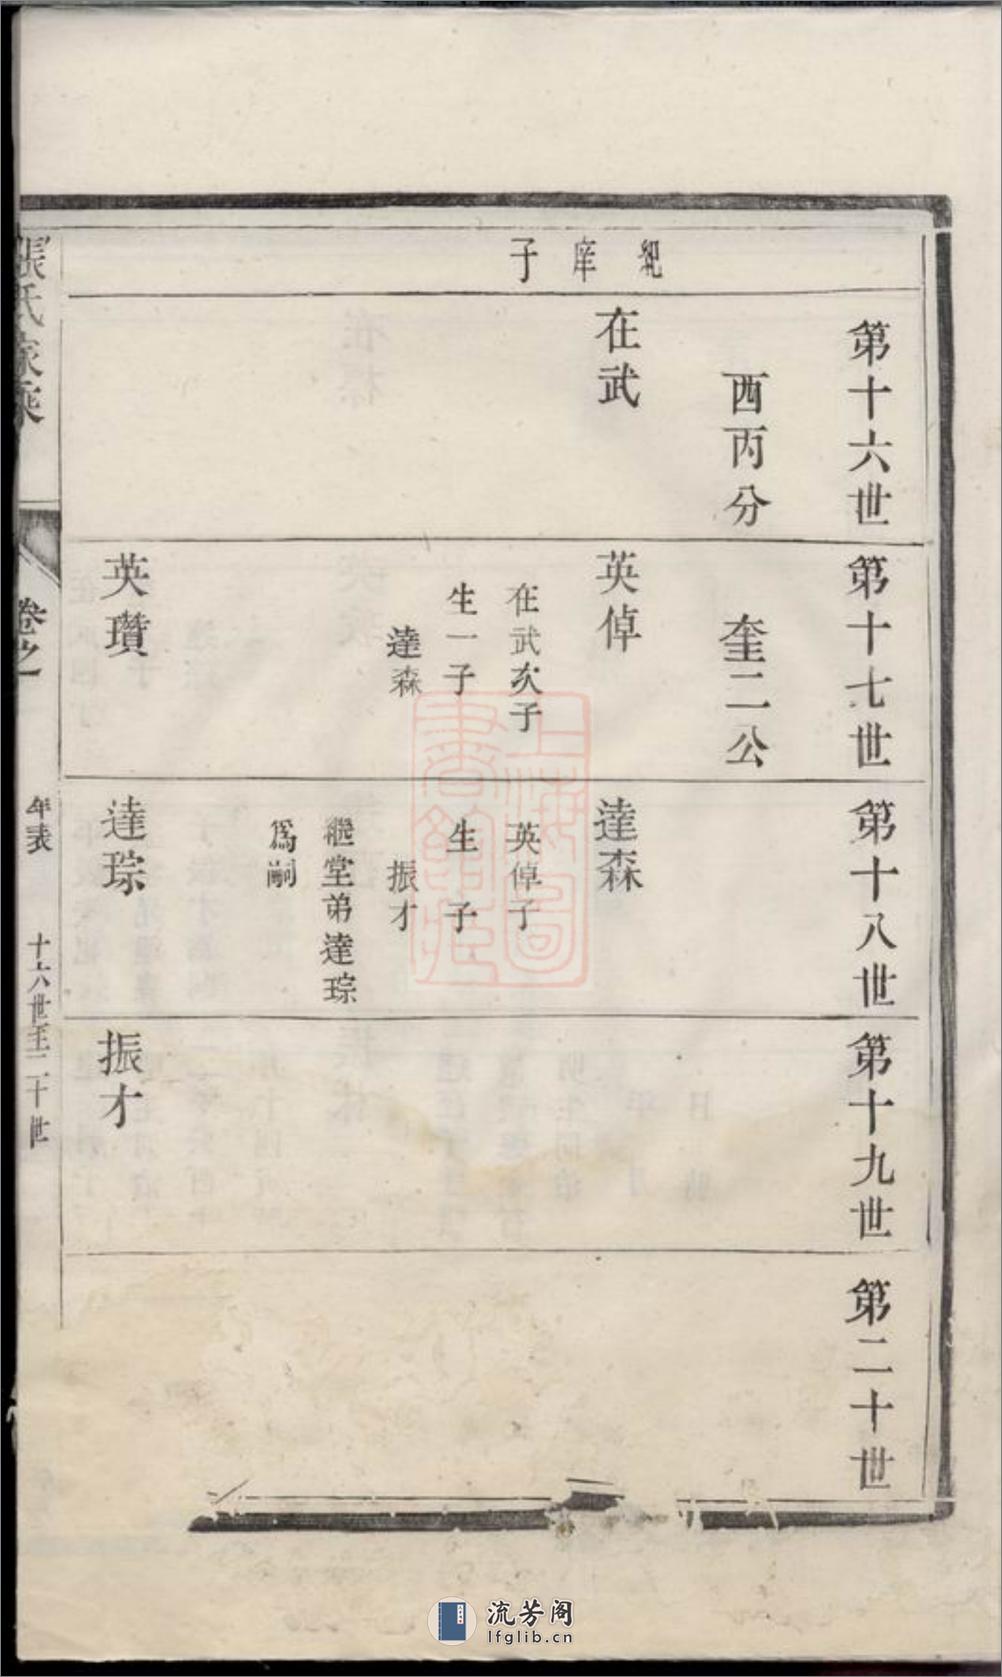 紀庠子
第十六世
西丙分
在武
第十七世
奎二公
英倬
在武次子
生一子
達森
英瓚
第十八世
達森
英倬子
生 子
振才
繼堂弟達琮
爲嗣
達琮
第十九世
振才
第二十世
張氏家乘
卷之
年表
十六世至二十世
上海圖
書館藏
流芳阁
lfglib.cn